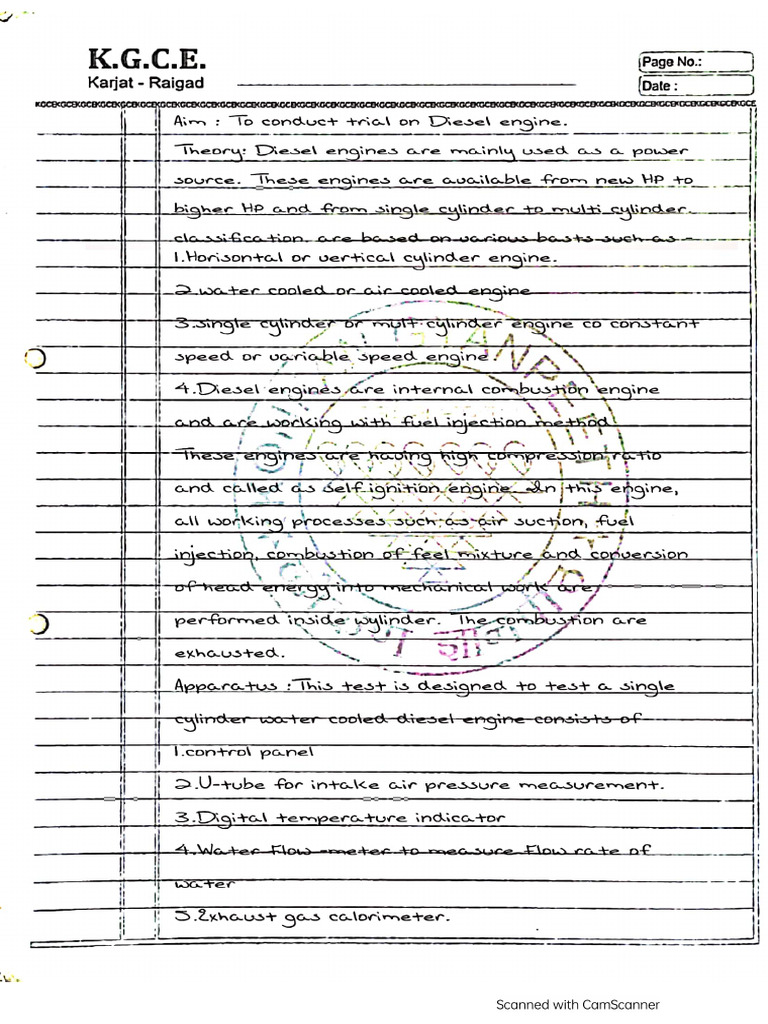 K.G.C.E.
Karjat - Raigad
Page No.:
Date :
Aim : To conduct trial on Diesel engine.
Theory: Diesel engines are mainly used as a power
source. These engines are available from new HP to
higher HP and from single cylinder to multi cylinder.
classification. are based on various basts such as -
1.Horisontal or vertical cylinder engine.
2.water cooled or air cooled engine
3.single cylinder or mult-cylinder engine co constant
speed or variable speed engine.
4.Diesel engines are internal combustion engine
and are working with fuel injection method.
These engines are having high compression ratio
and called as self ignition engine. In this engine,
all working processes such as air suction, fuel
injection, combustion of feel mixture and conversion
of head energy into mechanical work are
performed inside wylinder. The combustion are
exhausted.
Apparatus : This test is designed to test a single
cylinder water cooled diesel engine consists of
1.control panel
2.U-tube for intake air pressure measurement.
3.Digital temperature indicator
4.Water Flow -meter to measure Flow rate of
water
5.2xhaust gas calorimeter.
Scanned with CamScanner